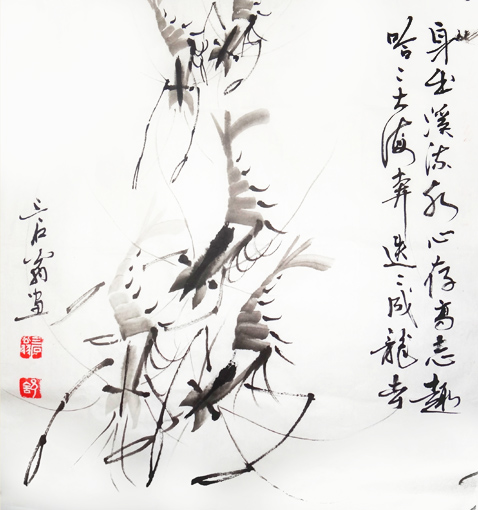 身出溪流水心存高志趣
哈哈大海奔速速成龙去
三石翁画